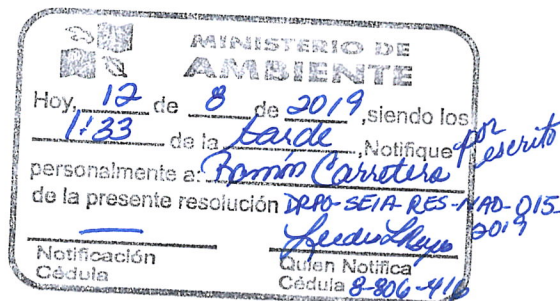 MINISTERIO DE
AMBIENTE
Hoy, 12 de 8 de 2019, siendo los
1:33 de la tarde, Notifique por escrito
personalmente a: Ramón Carretero
de la presente resolución DRPO-SEIA-RES-NAD-015-2019
Notificación
Cédula
Quien Notifica
Cédula 8-806-416